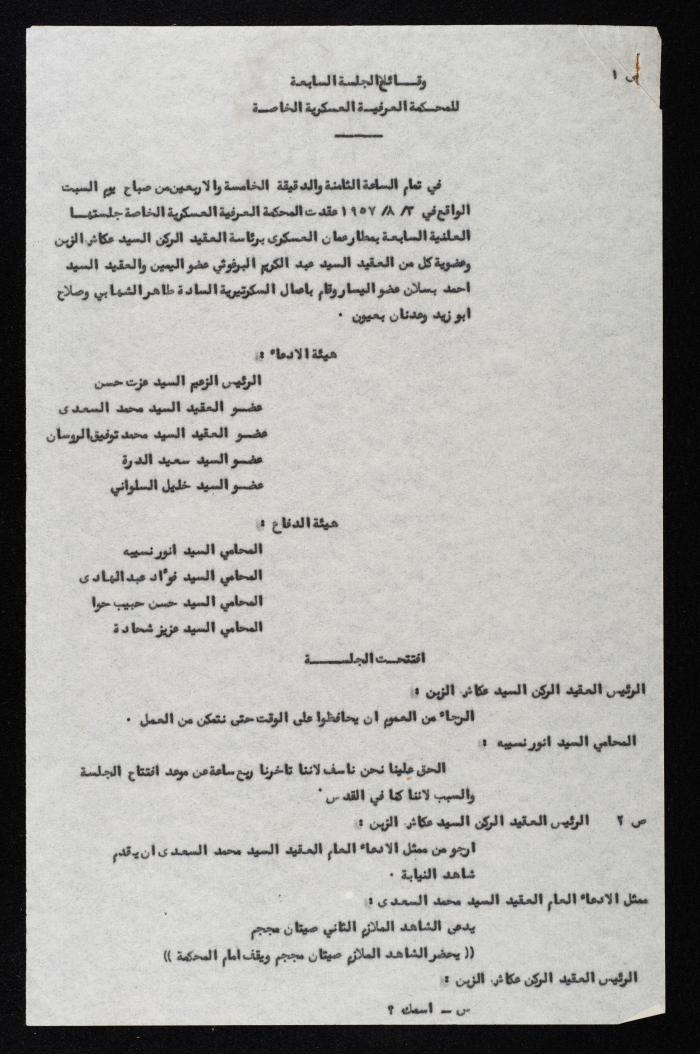 ص ١
وقـــائع الجلسة السابعة
للمحـكمة العرفيـة العسكرية الخاصـة
في تمام الساعة الثامنة والدقيقة الخامسة والاربعين من صباح يوم السبت
الواقع في ٣/ ٨/ ١٩٥٧ عقدت المحكمة العرفية العسكرية الخاصة جلستهـا
العلنية السابعة بمطار عمان العسكرى برئاسة العقيد الركن السيد عكاش الزبن
وعضوية كل من العقيد السيد عبد الكريم البرغوثي عضو اليمين والعقيد السيد
احمد بسلان عضو اليسار وقام باعمال السكرتيرية السادة طاهر الشهابي وصلاح
ابو زيد وعدنان بعيون ٠
هيئة الادعاء :
الرئيس الزعيم السيد عزت حسن
عضــو العقيد السيد محمد السعدى
عضــو العقيد السيد محمد توفيق الروسان
عضـو السيد سعيد الدرة
عضـو السيد خليل السلواني
هيئة الدفاع :
المحامي السيد انور نسيبه
المحامي السيد فوءاد عبد الهادى
المحامي السيد حسن حبيب حوا
المحامي السيد عزيز شحادة
افتتحـت الجلســـة
الرئيس العقيد الركن السيد عكاش الزبن :
الرجاء من العموم ان يحافظوا على الوقت حتى نتمكن من العمل ٠
المحامي السيد انور نسيبه :
الحق علينا نحن ناسف لاننا تاخرنا ربع ساعة عن موعد افتتاح الجلسة
والسبب لاننا كنا في القدس ٠
ص ٢ الرئيس العقيد الركن السيد عكاش الزبن :
ارجو من ممثل الادعاء العام العقيد السيد محمد السعدى ان يقدم
شاهد النيابة ٠
ممثل الادعاء العام العقيد السيد محمد السعدى :
يدعى الشاهد الملازم الثاني صيتان مججم
(( يحضر الشاهد الملازم صيتان مججم ويقف امام المحكمة ))
الرئيس العقيد الركن عكاش الزبن :
س ــ اسمك ؟